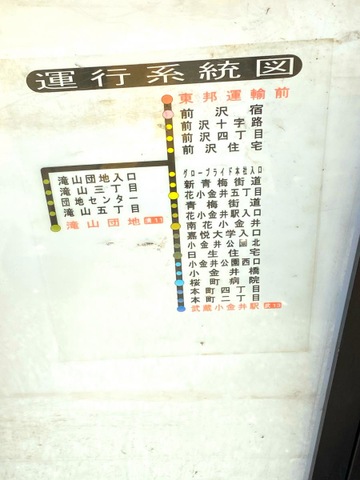 運行系統図
東邦運輸前
前沢宿
前沢十字路
前沢四丁目
前沢住宅
グローブライド本社入口
新青梅街道
花小金井五丁目
青梅街道
花小金井駅入口
南花小金井
嘉悦大学入口
小金井公園北
日生住宅
小金井公園西口
小金井橋
桜町病院
本町四丁目
本町二丁目
武蔵小金井駅 武13
滝山団地入口
滝山三丁目
団地センター
滝山五丁目
滝山団地